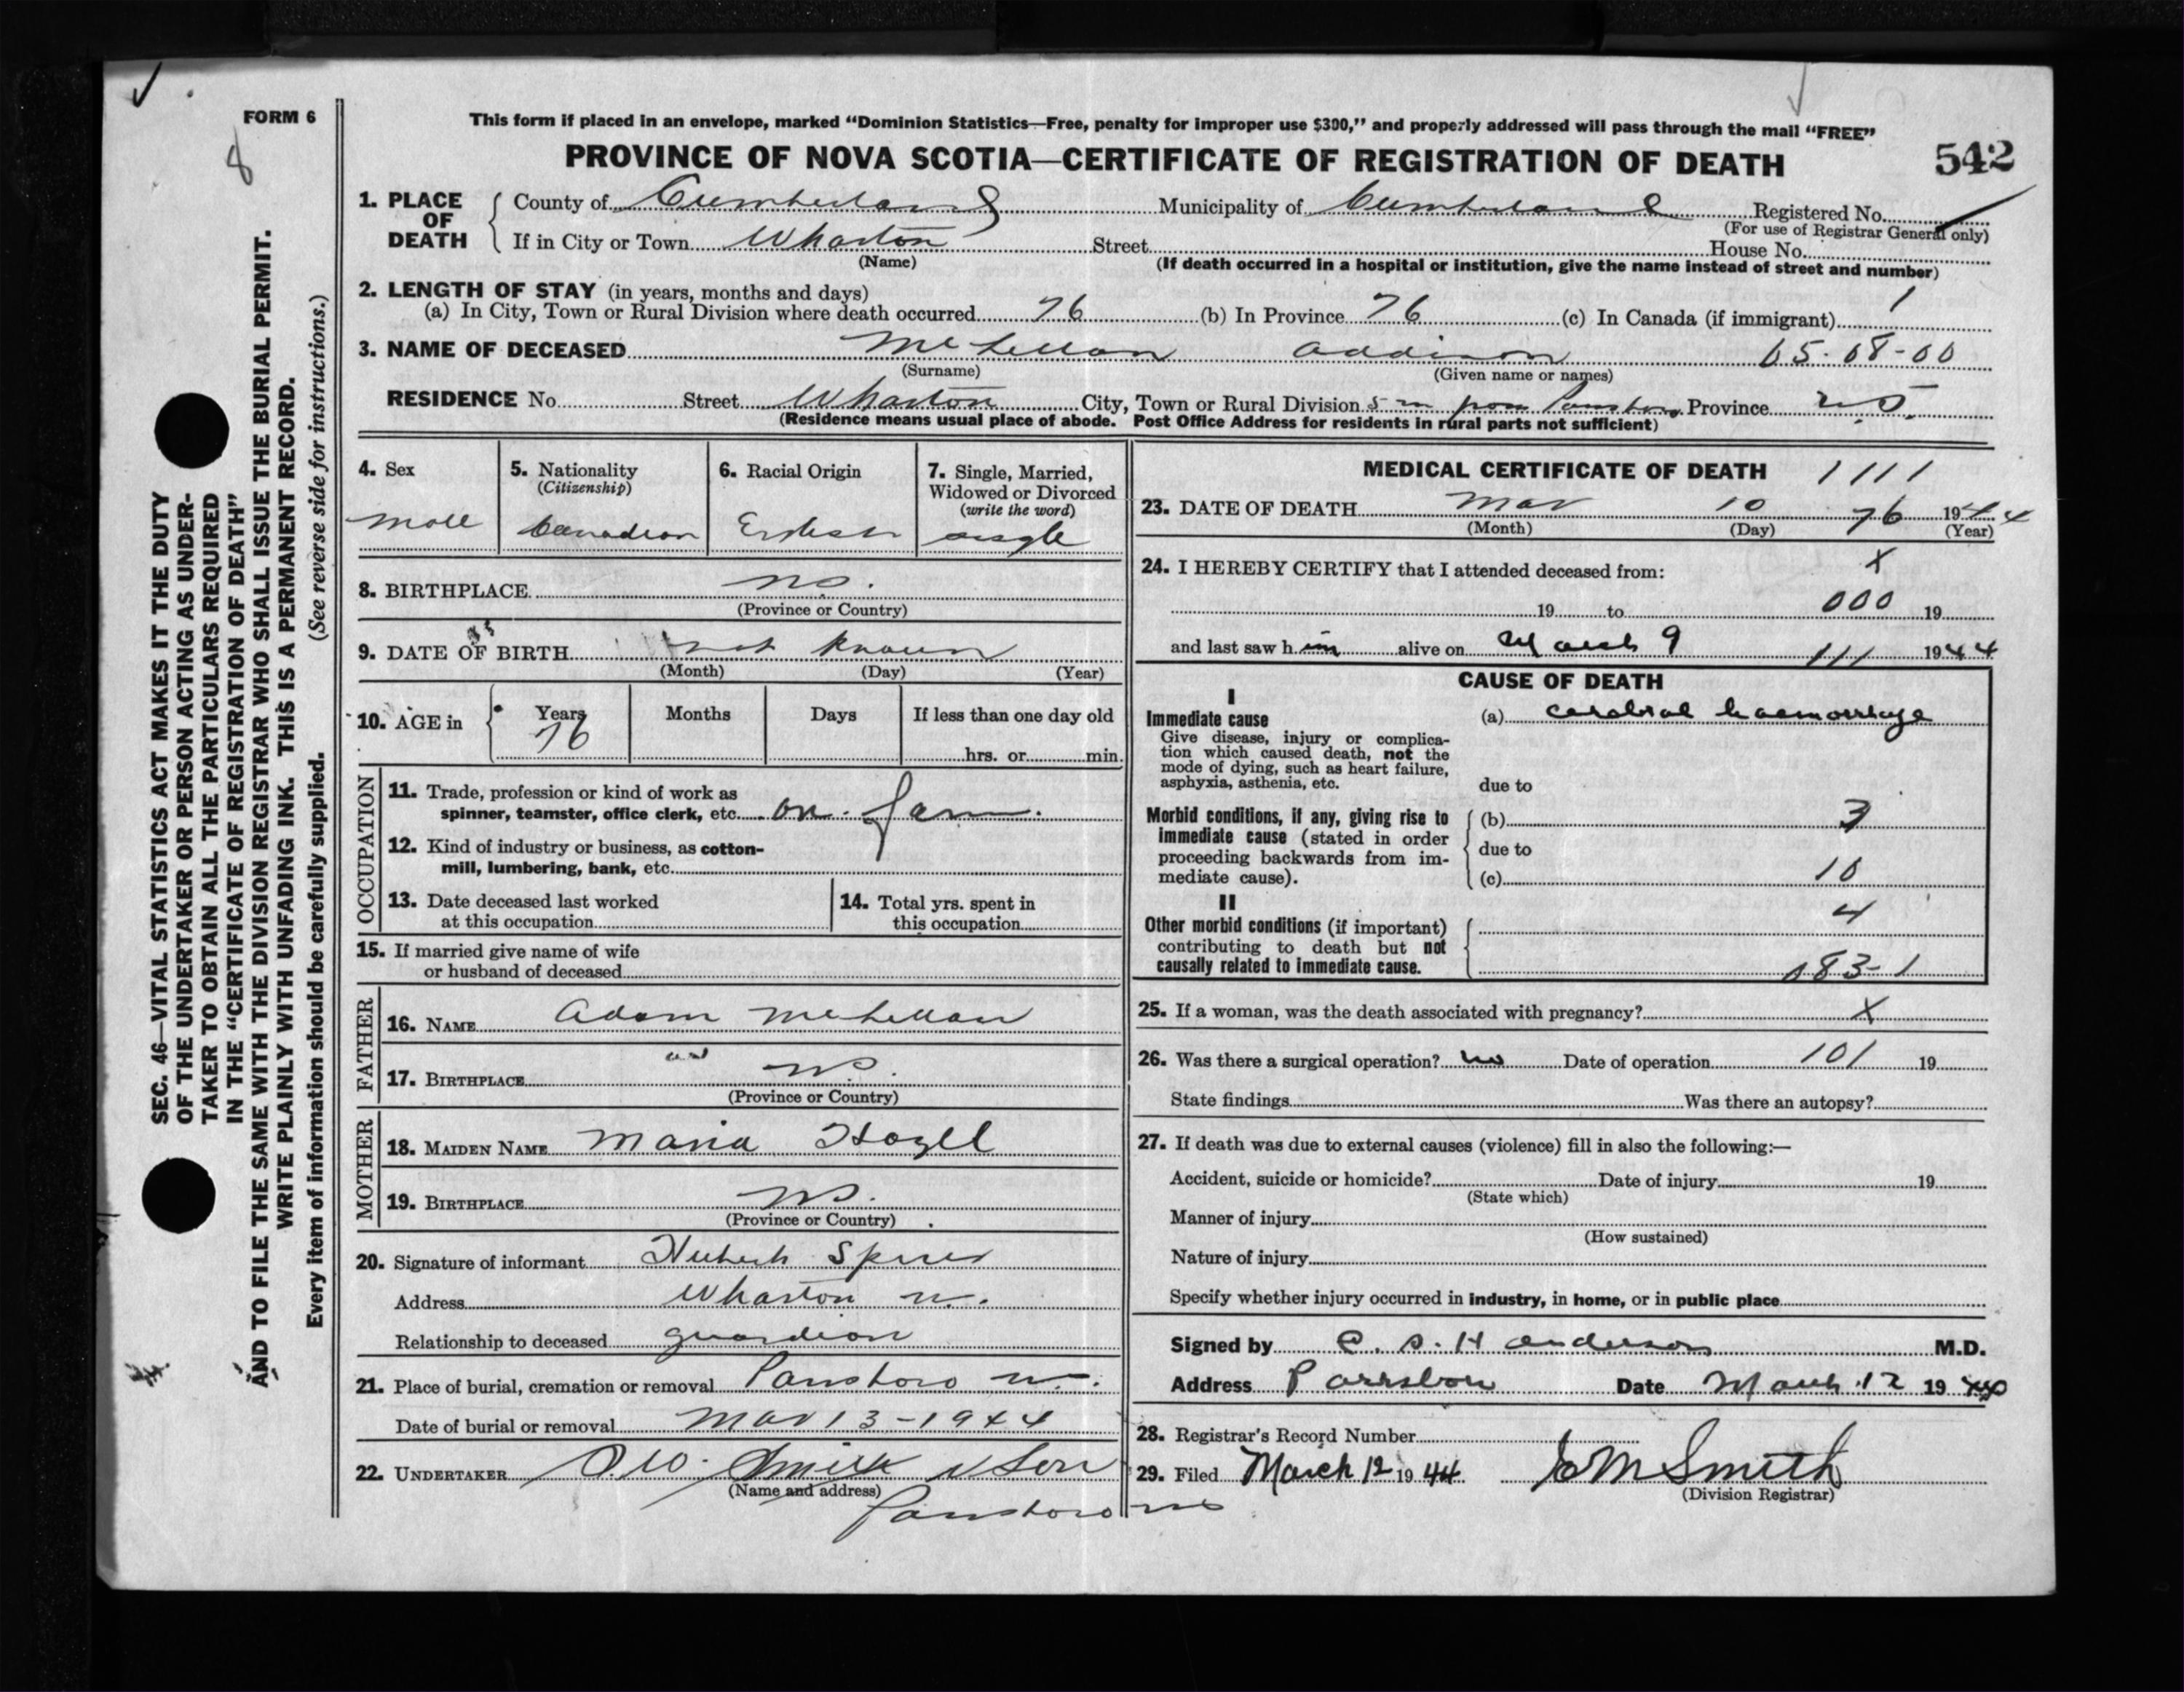 FORM 6
8
This form if placed in an envelope, marked “Dominion Statistics—Free, penalty for improper use $300,” and properly addressed will pass through the mail “FREE”
PROVINCE OF NOVA SCOTIA—CERTIFICATE OF REGISTRATION OF DEATH
542
SEC. 46—VITAL STATISTICS ACT MAKES IT THE DUTY
OF THE UNDERTAKER OR PERSON ACTING AS UNDER-
TAKER TO OBTAIN ALL THE PARTICULARS REQUIRED
IN THE “CERTIFICATE OF REGISTRATION OF DEATH”
AND TO FILE THE SAME WITH THE DIVISION REGISTRAR WHO SHALL ISSUE THE BURIAL PERMIT.
WRITE PLAINLY WITH UNFADING INK. THIS IS A PERMANENT RECORD.
Every item of information should be carefully supplied. (See reverse side for instructions.)
1. PLACE OF DEATH
County of Cumberland Municipality of Cumberland Registered No.
(For use of Registrar General only)
If in City or Town Wharton Street House No.
(Name) (If death occurred in a hospital or institution, give the name instead of street and number)
2. LENGTH OF STAY (in years, months and days)
(a) In City, Town or Rural Division where death occurred 76 (b) In Province 76 (c) In Canada (if immigrant) 1
3. NAME OF DECEASED McLellan Addison 05-08-00
(Surname) (Given name or names)
RESIDENCE No. Street Wharton City, Town or Rural Division 5 m from Parrsboro Province N.S.
(Residence means usual place of abode. Post Office Address for residents in rural parts not sufficient)
4. Sex
male
5. Nationality
(Citizenship)
Canadian
6. Racial Origin
English
7. Single, Married,
Widowed or Divorced
(write the word)
single
8. BIRTHPLACE N.S.
(Province or Country)
9. DATE OF BIRTH not known
(Month) (Day) (Year)
10. AGE in Years Months Days If less than one day old
76 hrs. or min.
OCCUPATION
11. Trade, profession or kind of work as
spinner, teamster, office clerk, etc. on farm.
12. Kind of industry or business, as cotton-
mill, lumbering, bank, etc.
13. Date deceased last worked
at this occupation
14. Total yrs. spent in
this occupation
15. If married give name of wife
or husband of deceased
FATHER
16. NAME Adam McLellan
17. BIRTHPLACE N.S.
(Province or Country)
MOTHER
18. MAIDEN NAME Maria
19. BIRTHPLACE N.S.
(Province or Country)
20. Signature of informant
Address Wharton N.S.
Relationship to deceased guardian
21. Place of burial, cremation or removal Parrsboro N.S.
Date of burial or removal Mar 13-1944
22. UNDERTAKER Smith & Son
(Name and address)
Parrsboro NS
MEDICAL CERTIFICATE OF DEATH 1111
23. DATE OF DEATH Mar 10 76 1944
(Month) (Day) (Year)
24. I HEREBY CERTIFY that I attended deceased from: X
19 to 000 19
and last saw h im alive on March 9 111 1944
CAUSE OF DEATH
I
Immediate cause
Give disease, injury or complica-
tion which caused death, not the
mode of dying, such as heart failure,
asphyxia, asthenia, etc.
(a) cerebral haemorrhage
due to
Morbid conditions, if any, giving rise to
immediate cause (stated in order
proceeding backwards from im-
mediate cause).
(b) 3
due to
(c) 10
II
Other morbid conditions (if important)
contributing to death but not
causally related to immediate cause.
4
083-1
25. If a woman, was the death associated with pregnancy? X
26. Was there a surgical operation? no Date of operation 101 19
State findings Was there an autopsy?
27. If death was due to external causes (violence) fill in also the following:—
Accident, suicide or homicide? Date of injury 19
(State which)
Manner of injury
(How sustained)
Nature of injury
Specify whether injury occurred in industry, in home, or in public place
Signed by Anderson M.D.
Address Parrsboro Date March 12 1944
28. Registrar's Record Number
29. Filed March 12 1944 Smith
(Division Registrar)